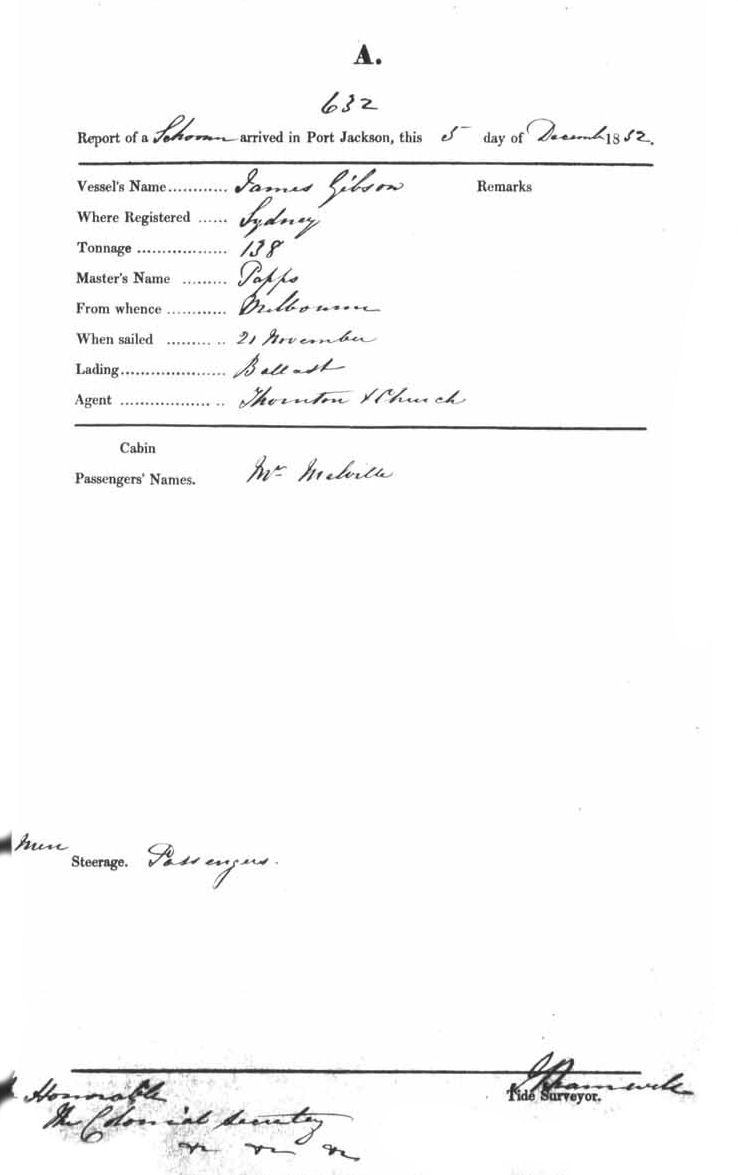 A.
632
Report of a Schooner arrived in Port Jackson, this 5 day of December 1852.
Vessel's Name............ James Gibson Remarks
Where Registered ...... Sydney
Tonnage .................. 138
Master's Name ......... Papps
From whence ............ Melbourne
When sailed ......... .. 21 November
Lading..................... Ballast
Agent .................. .. Thornton & Church
Cabin
Passengers' Names. Mr Melville
Steerage. Passengers.
Tide Surveyor.
Honorable
The Colonial Secretary